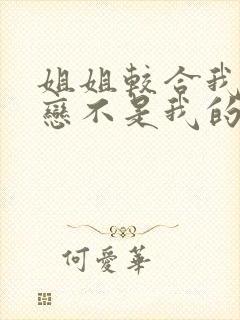 姐姐較合我
戀不是我的
何愛華